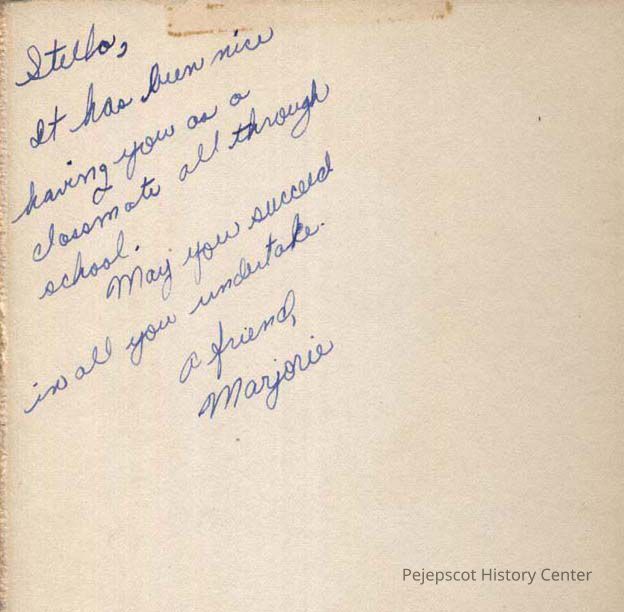 Stella,
It has been nice
having you as a
classmate all through
school.
May you succeed
in all you undertake.
A friend,
Marjorie
Pejepscot History Center